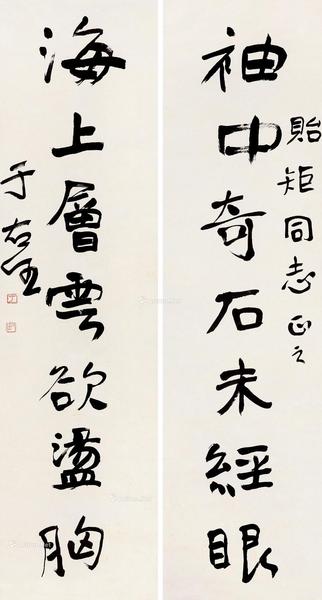 袖中奇石未經眼
貽矩同志正之
海上層雲欲盪胸
于右任